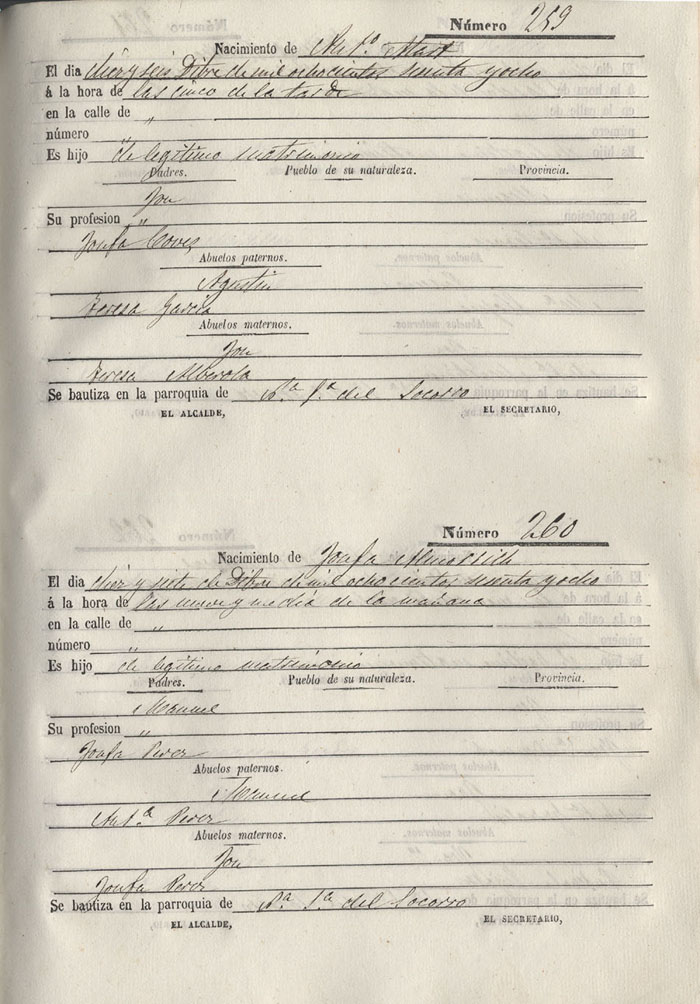 Número 259
Nacimiento de Ant.º Mast
El dia diez y seis Dibre de mil ochocientos sesenta y ocho
á la hora de las cinco de la tarde
en la calle de "
número "
Es hijo de legítimo matrimonio
Padres. Pueblo de su naturaleza. Provincia.
Jou
Su profesion "
Josefa Coves
Abuelos paternos.
Agustin
Teresa Garcia
Abuelos maternos.
Jou
Teresa Alberola
Se bautiza en la parroquia de N.ª S.ª del Socorro
EL ALCALDE, EL SECRETARIO,
Número 260
Nacimiento de Josefa
El dia diez y siete de Dibre de mil ochocientos sesenta y ocho
á la hora de las nueve y media de la mañana
en la calle de "
número "
Es hijo de legítimo matrimonio
Padres. Pueblo de su naturaleza. Provincia.
Manuel
Su profesion "
Josefa Perez
Abuelos paternos.
Manuel
Ant.ª Perez
Abuelos maternos.
Jou
Josefa Perez
Se bautiza en la parroquia de N.ª S.ª del Socorro
EL ALCALDE, EL SECRETARIO,